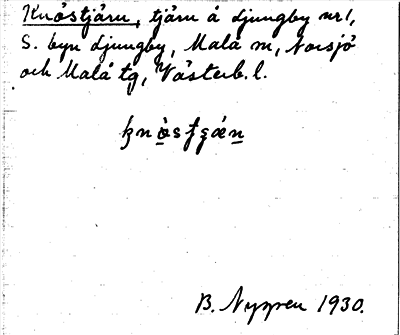 Knöstjärn, tjärn å Ljungby nr 1,
S. byn Ljungby, Malå sn, Norsjö
och Malå tg, Västerb. l.
B. Nygren 1930.